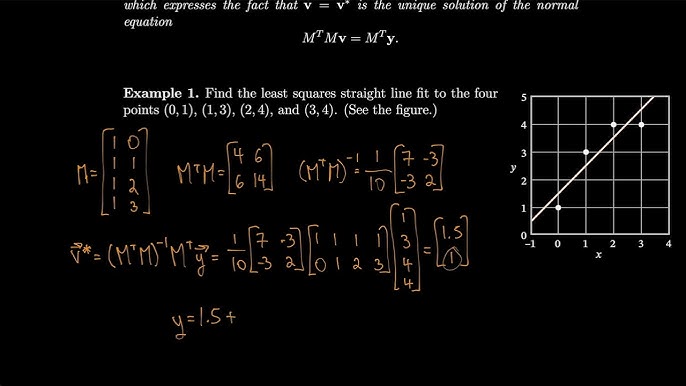 which expresses the fact that v = v* is the unique solution of the normal
equation
MᵀMv = Mᵀy.
Example 1. Find the least squares straight line fit to the four
points (0, 1), (1, 3), (2, 4), and (3, 4). (See the figure.)
M = [1 0; 1 1; 1 2; 1 3] MᵀM = [4 6; 6 14] (MᵀM)⁻¹ = 1/10 [7 -3; -3 2]
v⃗* = (MᵀM)⁻¹Mᵀy⃗ = 1/10 [7 -3; -3 2] [1 1 1 1; 0 1 2 3] [1; 3; 4; 4] = [1.5; 1]
y = 1.5 +
5
4
3
y
2
1
0
-1 0 1 2 3 4
x